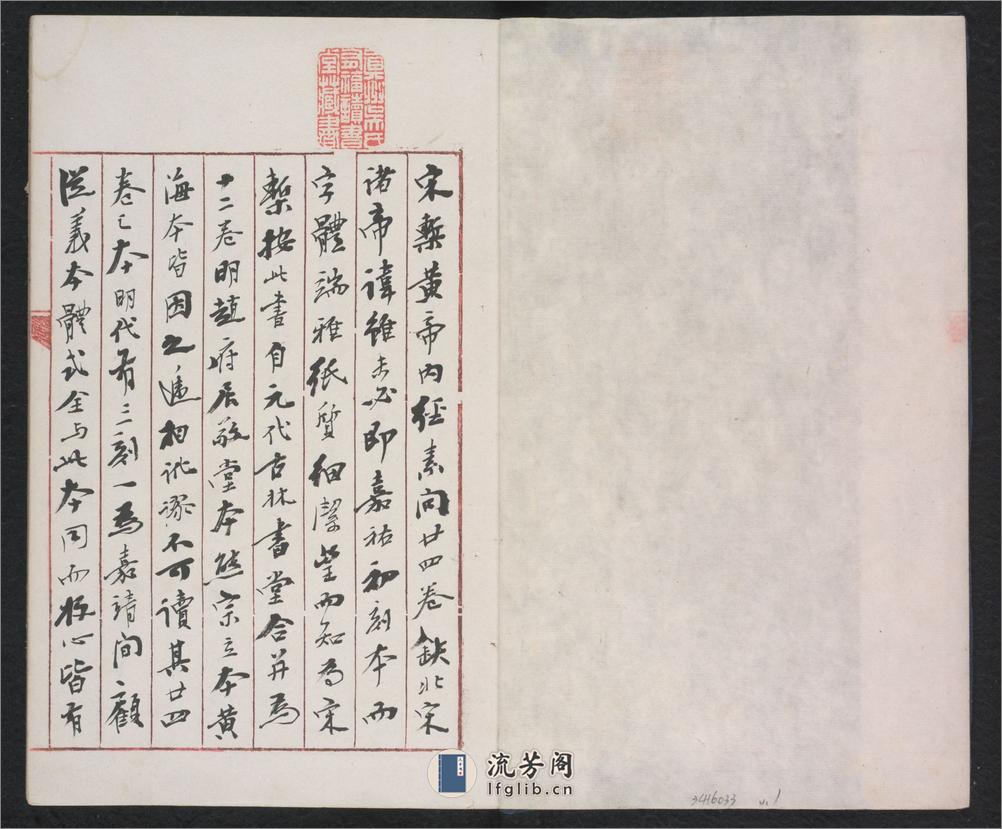 宋槧黃帝內經素問廿四卷缺北宋
諸帝諱雖未必即嘉祐初刻本而
字體端雅紙質細潔望而知為宋
槧按此書自元代古林書堂合并為
十二卷明趙府居敬堂本熊宗立本黃
海本皆因之遞相訛謬不可讀其廿四
卷之本明代有二刻一為嘉靖間顧
從義本體式全與此本同而板心皆有
真州吳氏
有福讀書
堂藏書
流芳阁
lfglib.cn
3416033
v.1